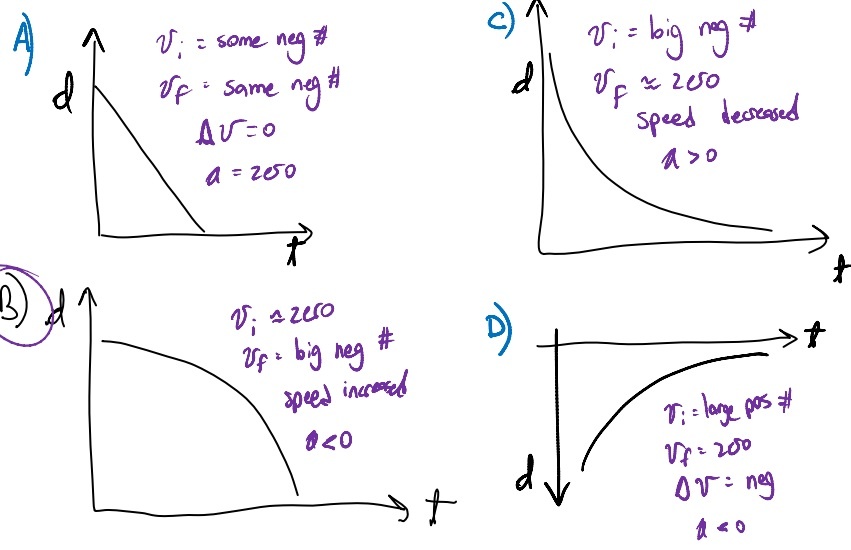 A)
d
v_i = some neg #
v_f = same neg #
Δv = 0
a = zero
t
B)
d
v_i ≈ zero
v_f = big neg #
speed increased
a < 0
t
C)
d
v_i = big neg #
v_f ≈ zero
speed decreased
a > 0
t
D)
t
d
v_i = large pos #
v_f = zero
Δv = neg
a < 0